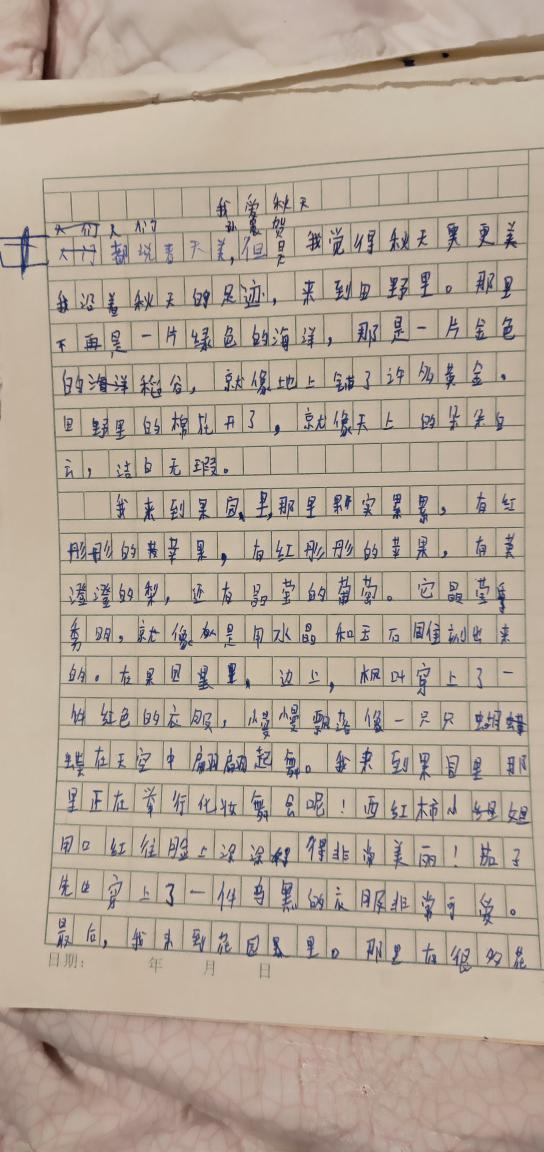 我爱秋天
人们都说春天美，但是我觉得秋天要更美
我沿着秋天的足迹，来到田野里。那里
不再是一片绿色的海洋，那是一片金色
的海洋稻谷，就像地上铺了许多黄金。
田野里的棉花开了，就像天上的朵朵白
云，洁白无瑕。
我来到果园里，那里果实累累，有红
彤彤的苹果，有红彤彤的苹果，有黄
澄澄的梨，还有晶莹的葡萄。它晶莹
透明，就像是用水晶和玉石雕刻出来
的。在果园里，边上，枫叶穿上了一
件红色的衣服，慢慢飘落像一只只蝴蝶
在天空中翩翩起舞。我来到果园里那
里正在举行化妆舞会呢！西红柿小姐姐
用口红往脸上涂涂得非常美丽！茄子
先生穿上了一件乌黑的衣服非常可爱。
最后，我来到花园里。那里有很多花
日期： 年 月 日